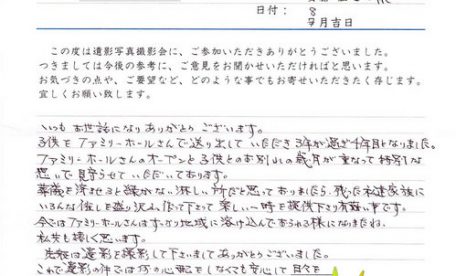 日付： 8
月吉日
この度は遺影写真撮影会に、ご参加いただきありがとうございました。
つきましては今後の参考に、ご意見をお聞かせいただければと思います。
お気づきの点や、ご要望など、どのような事でもお寄せいただきたく存じます。
宜しくお願い致します。
いつもお世話になりありがとうございます。
子供をファミリーホールさんで送り出していただき3年が過ぎ4年目となりました。
ファミリーホールさんのオープンと子供とのお別れの歳月が重なって特別な
思いで見守らせていただいております。
葬儀を済ませると縁がない淋しい所だと思っておりましたら、残った私達家族に
いろんな催しを盛り沢山作って下さって楽しい一時を提供下さり有難い事です。
今ではファミリーホールさんはすっかり地域に溶け込んでおられる様になりましたね。
私共も嬉しく思います。
先程は遺影を撮影して下さいましてありがとうございました。
これで遺影の件では何の心配もしなくても安心して日々を